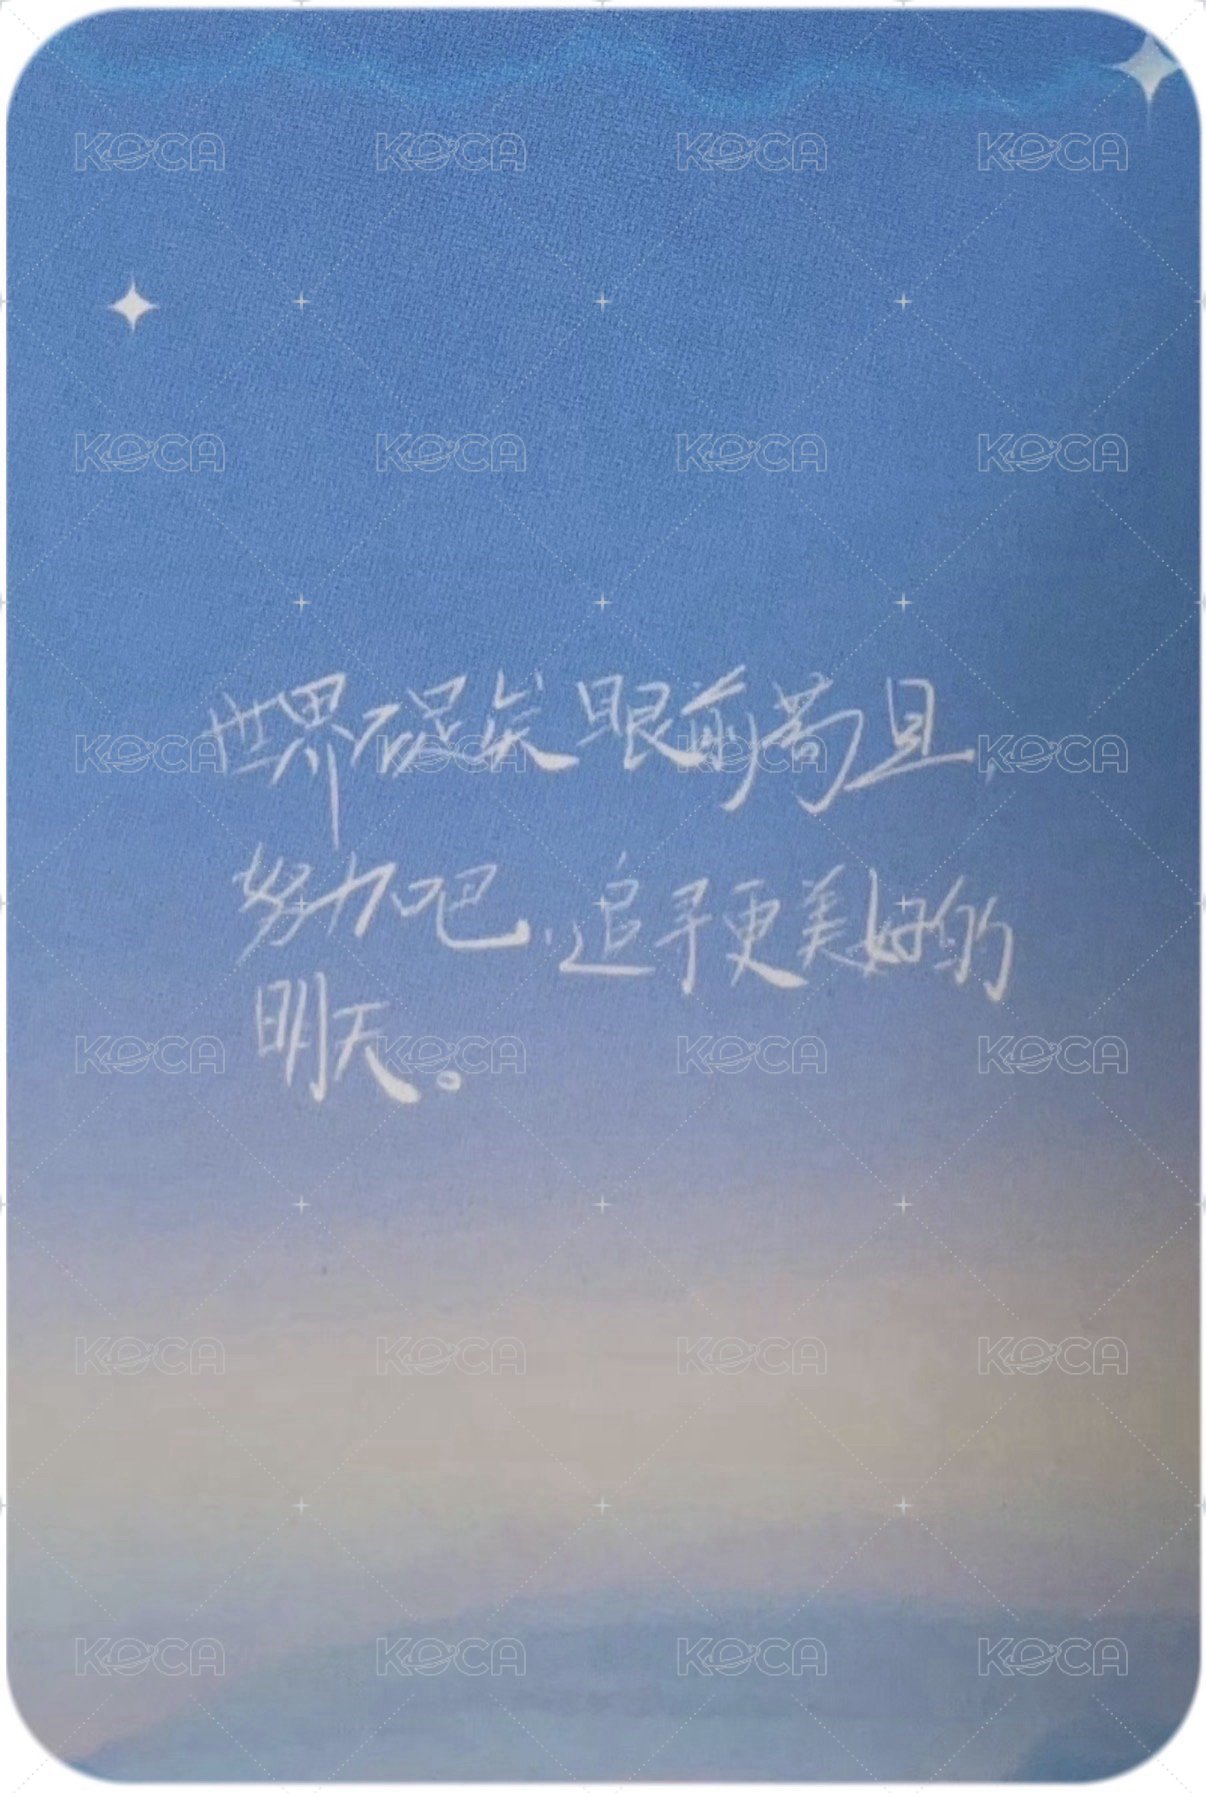 KOCA KOCA KOCA KOCA
KOCA KOCA KOCA KOCA
世界不是眼前苟且,
KOCA KOCA KOCA KOCA
努力吧,追寻更美好的
明天。
KOCA KOCA KOCA KOCA
KOCA KOCA KOCA KOCA
KOCA KOCA KOCA KOCA